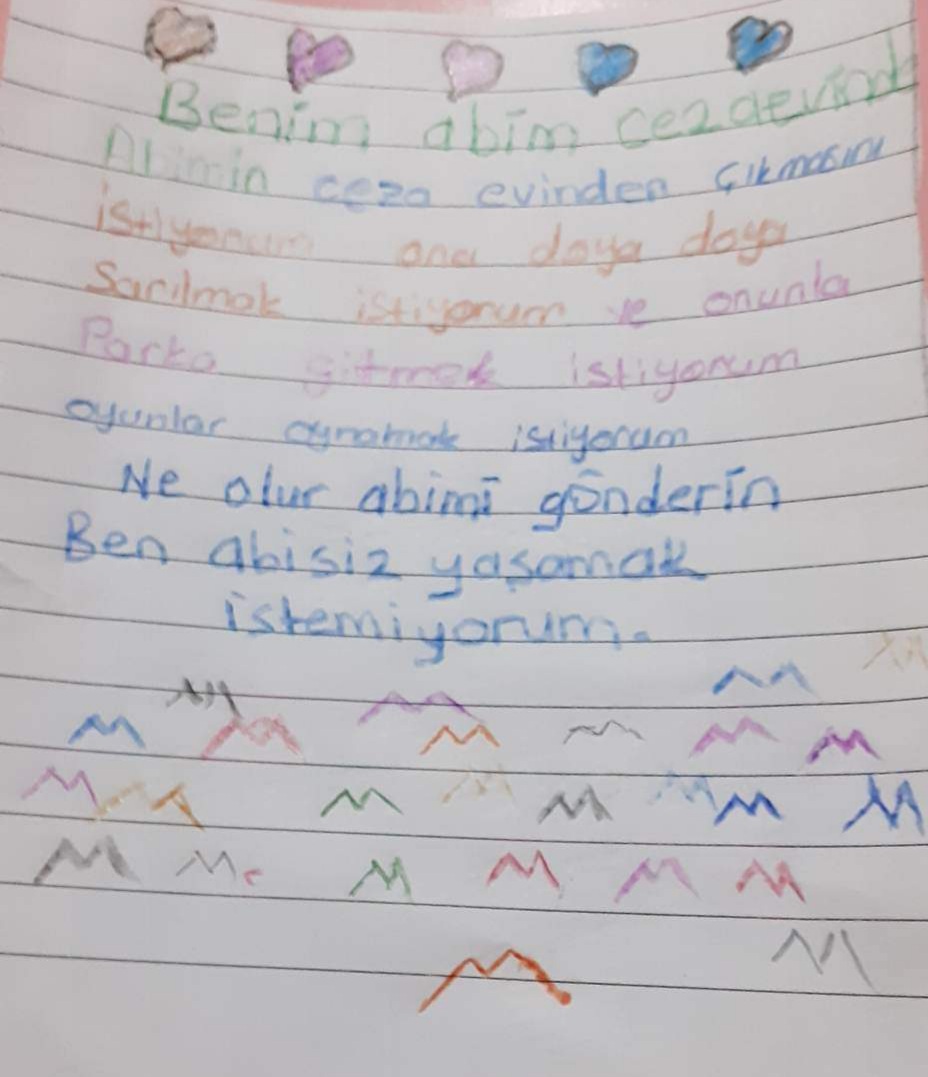 Benim abim cezaevind
Abimin ceza evinden çıkmasını
istiyorum ona doya doya
Sarılmak istiyorum ve onunla
Parka gitmek istiyorum
oyunlar oynamak istiyorum
Ne olur abimi gönderin
Ben abisiz yaşamak
istemiyorum.